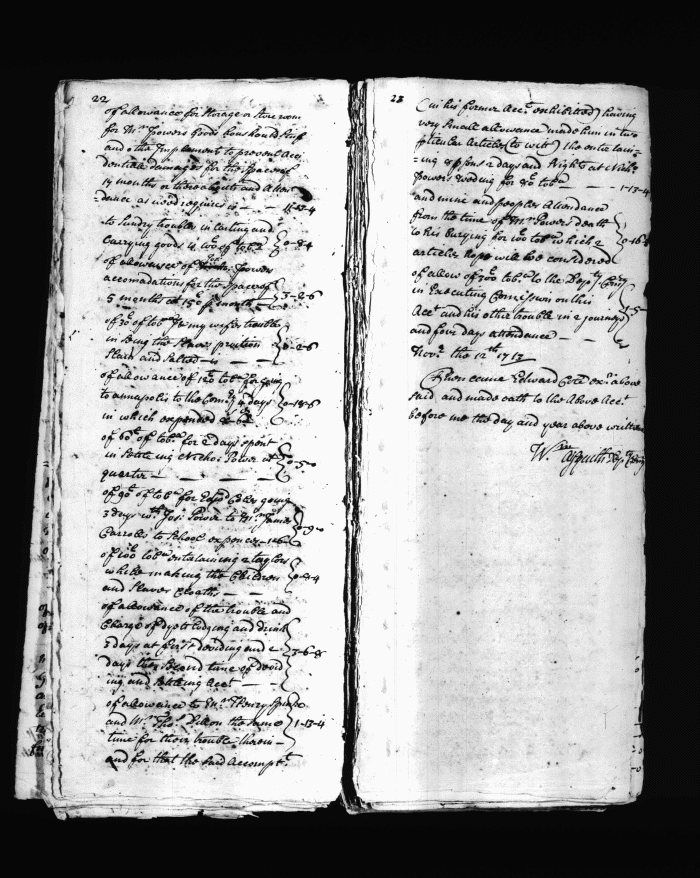 22
of allowance for Storage or Store room
for Mr. Powers Goods houshould Stuf
and other Implements to prevent Acci
dentiale damages for the space of
14 months or thereabouts and Atten
=dance as need requires is
to Sundry troubles in Carting and
Carrying goods is 100 of toba
of allowance of Powers
accomodations for the Space of
5 months at 150 month 3-2-6
of 30 of toba my wifes trouble
in Seeing the Slaves provision 0-2-6
Slain and Salted is
of allowance of 120 toba for going
to annapolis to the Comy 4 days
in which expended
of 60 of toba for 2 days spent
in Settling Nicho: Power at 0-5-0
quarter
of 90 of toba for Edwd Coles going
3 days wth Jos: Power to Mr. James 0-9-0
Carroles to School expences
of 100 toba entertaining 2 taylors
while making the Children
and Slaves Cloaths
of allowance of the trouble and
Charge of dyett Lodging and drink
days at first deviding and 2
days the Second time of devid
ing and Settling Acct
of allowance to Mr. Henry
and Mr. Thos on the Same 1-13-4
time for their trouble therein
and for that the Said Accompt
23
(in his former Acct exhibited) having
very Small allowance made him in two
pticular Articles (to witt) the entertain=
=ing 8 psons 2 days and Nights at Nicho
Powers 1-13-4
and mine and peoples Attendance
from the time of Mr Powers death
to his burying for 100 toba which 2
articles hope will be considered
of allow of 300 toba to the Depty Comy
in Executing Comission on this
Acct and his other trouble in 2 journeys
and four days attendance
Novr the 12th 1713
Then came Edward Cole exr above
Said and made oath to the Above Acct
before me the day and year above written
Wm